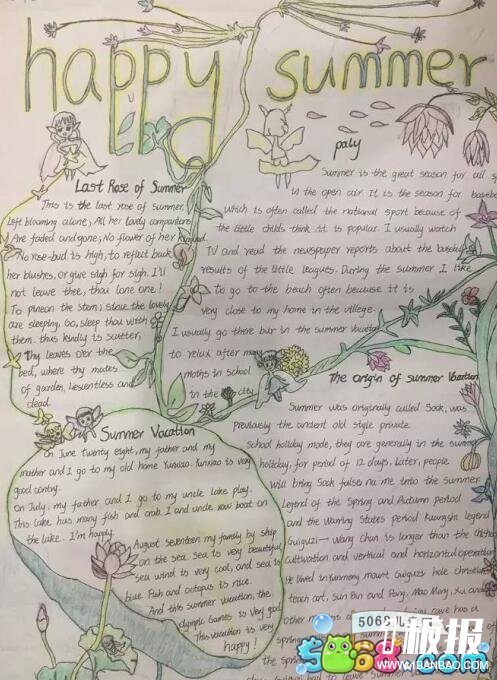 happy summer
Last Rose of Summer
This is the last rose of summer.
Left blooming alone; All her lovely companions
Are faded and gone; No flower of her kindred.
No rose-bud is high, to reflect back
her blushes, or give sigh for sigh. I'll
not leave thee, thou lone one!
To pineon the stem; since the lovely
are sleeping. Go, sleep thou with
them. thus kindly is scatter,
Thy leaves o'er the
bed, where thy mates
of garden, Lescentless and
dead.
paly
Summer is the great season for all s
in the open air it is the season for baseba
which is often called the national sport because of
the little childs think it is popular. I usually watch
TV and read the newspeper reports about the baseba
results of the little leagues. During the summer I like
To go to the beach often because it is
very close to my home in the villege.
I usually go there bur in the summer Vacatio
to relux after many
moths in school
in the city
Summer Vacation
On June twenty eight, my father and my
mather and I go to my old home Yunxiao. Yunxiao is very
good contry.
on July. my father and I go to my uncle lake play.
This lake has many fish and crab. I and uncle row boat on
the lake. I'm happy.
August seventeen my family by ship
on the sea. Sea is very beautiful,
sea wind is very cool, and sea is
blue. Fish and octopus is nice.
And this summer vacation, the
Olympic Games is Very good
This vacation is very
happy!
The origin of summer Vacation
Summer was originally called Sook, was
previously the ancient old style private
school holiday mode, they are generally in the summ
holiday, for period of 12 days. Later, people
Will bring Sook falss na me into the summer
Legend of the Spring and Autumn period
and the Warring States period Kuangshi legend
Guiguzi— Wang Chan is longer than the chishu
cultivation and vertical and horizontal operation
He lived in Yunmeng mount Guiguzi hole
teach art, Sun Bin and Pang, Mao Mang, Xu and
Other
the spring
the spring
had to leave summer
5068
极报
5068.com
www.1BANBAO.com